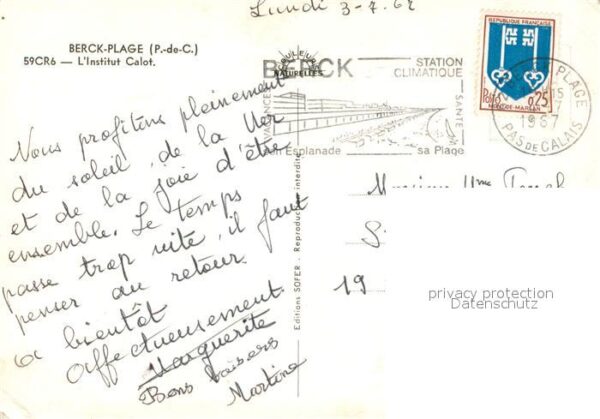 Lundi 3-7.67
BERCK-PLAGE (P.-de-C.)
59CR6 — L'Institut Calot.
COULEURS
NATURELLES
BERCK
STATION
CLIMATIQUE
VACANCES
SANTÉ
son Esplanade
sa Plage
REPUBLIQUE FRANÇAISE
Postes 0,25
MONT-DE-MARSAN
BERCK PLAGE
15
1967
PAS DE CALAIS
Nous profitons pleinement
du soleil, de la Mer
et de la joie d'être
ensemble. Le temps
passe trop vite, il faut
penser au retour.
a bientôt
Affectueusement
Marguerite
Bons baisers
Martine
Editions SOFER. Reproduction interdite
Monsieur Mme
19
privacy protection
Datenschutz